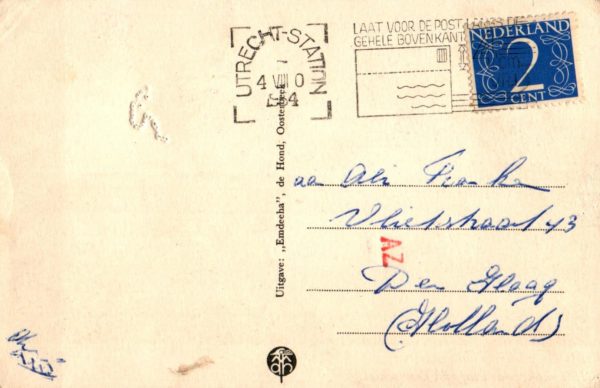 UTRECHT-STATION
4 VIII 0
LAAT VOOR DE POST
GEHELE BOVENKANT
NEDERLAND
2
CENT
Uitgave: „Emdeeha”, de Hond, Oosterbeek
aan Ali
Vlietstraat 43
AZ
Den Haag
(Holland)